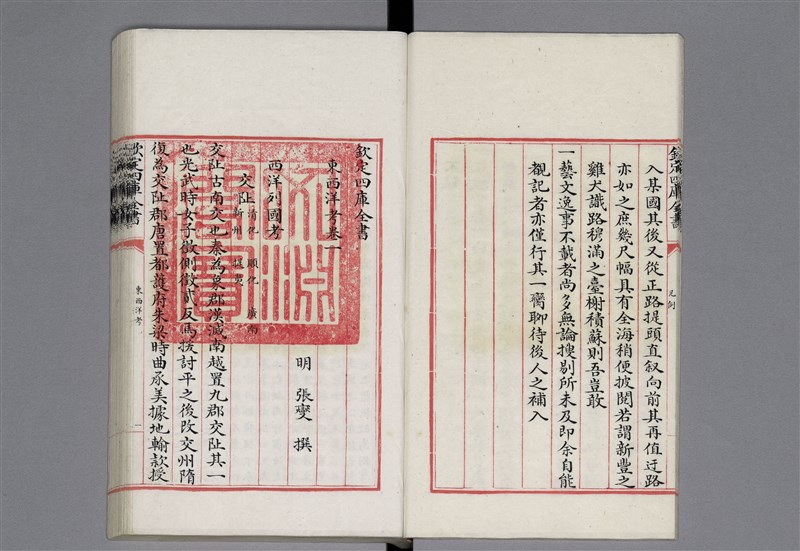 欽定四庫全書
凡例
入某國其後又從正路提頭直叙向前其再值迂路
亦如之庶幾尺幅具有全海稍便披閱若謂新豐之
雞犬識路穆滿之臺榭積蘇則吾豈敢
一藝文逸事不載者尚多無論搜剔所未及即余自能
覩記者亦僅行其一臠聊待後人之補入
欽定四庫全書
東西洋考卷一
明 張燮 撰
西洋列國考
交阯 清化 順化 廣南
新州 提夷
交阯古南交也秦為象郡漢滅南越置九郡交阯其一
也光武時女子徵側徵貳反馬援討平之後改交州隋
復為交阯郡唐置都護府朱梁時曲承美據地輸款授
欽定四庫全書
東西洋考
一
文淵
閣寶